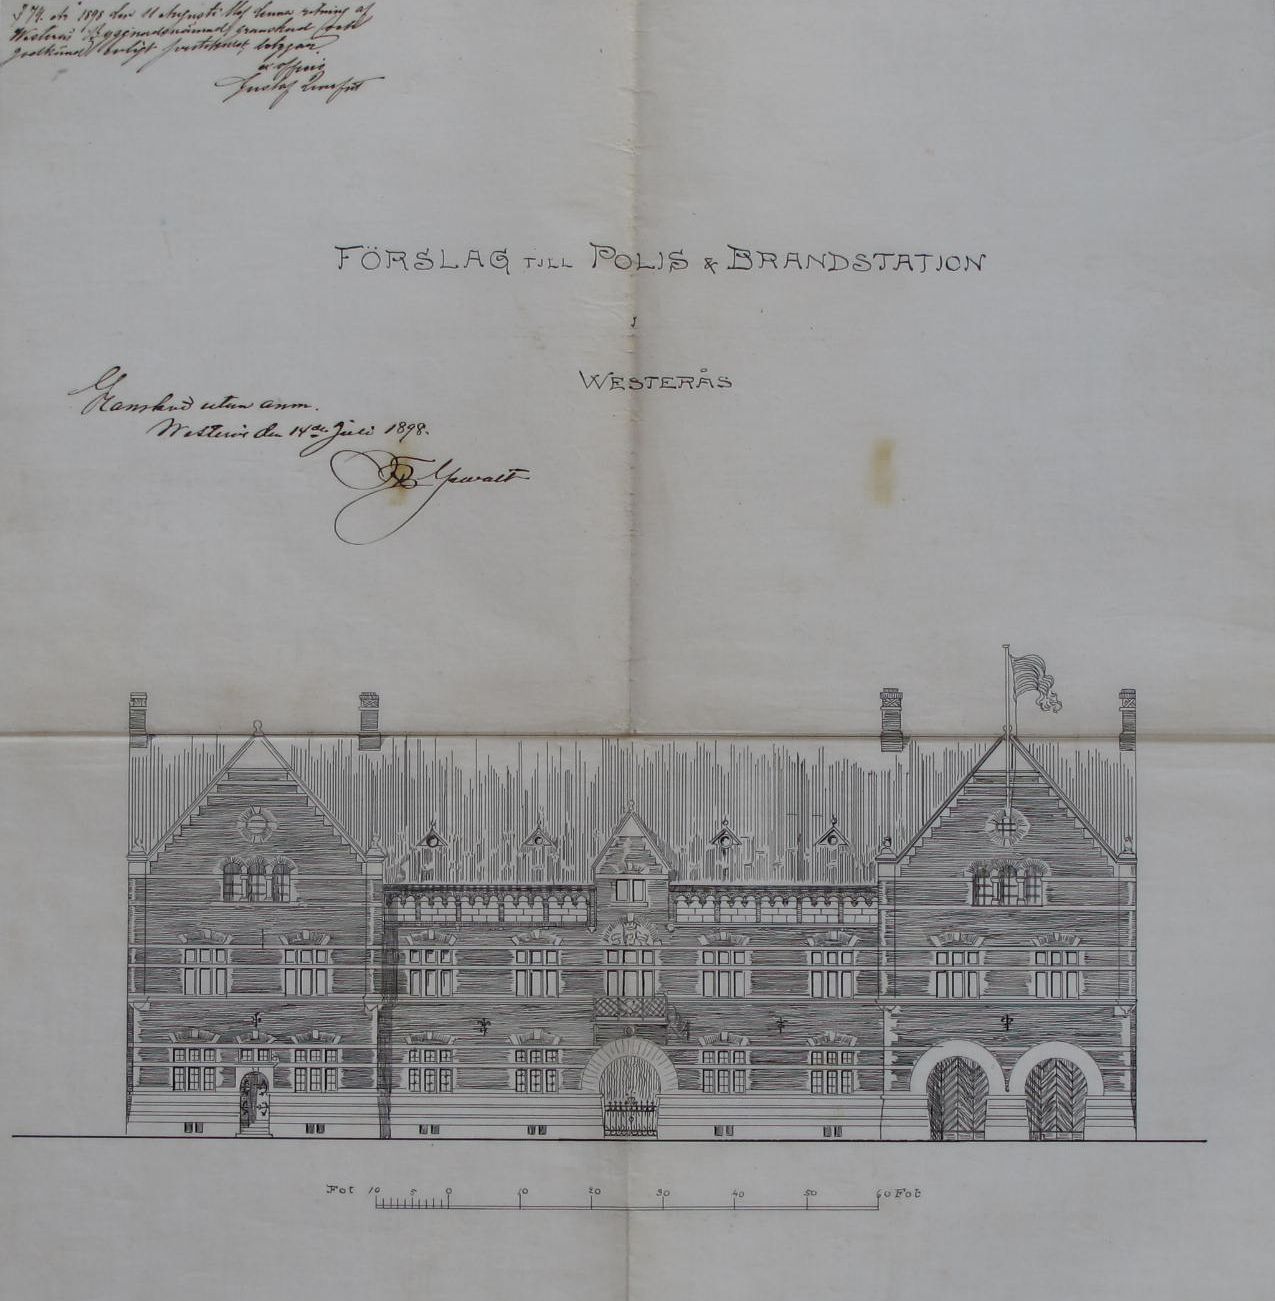 § 74. 1898 den 11 Augusti
Westerås Byggnadsnämnd granskad och
enligt
ex officio
Gustaf
FÖRSLAG TILL POLIS & BRANDSTATION
I
WESTERÅS
Granskad utan anm.
Westerås den 14de Juli 1898.
Fot 10 5 0 10 20 30 40 50 60 Fot